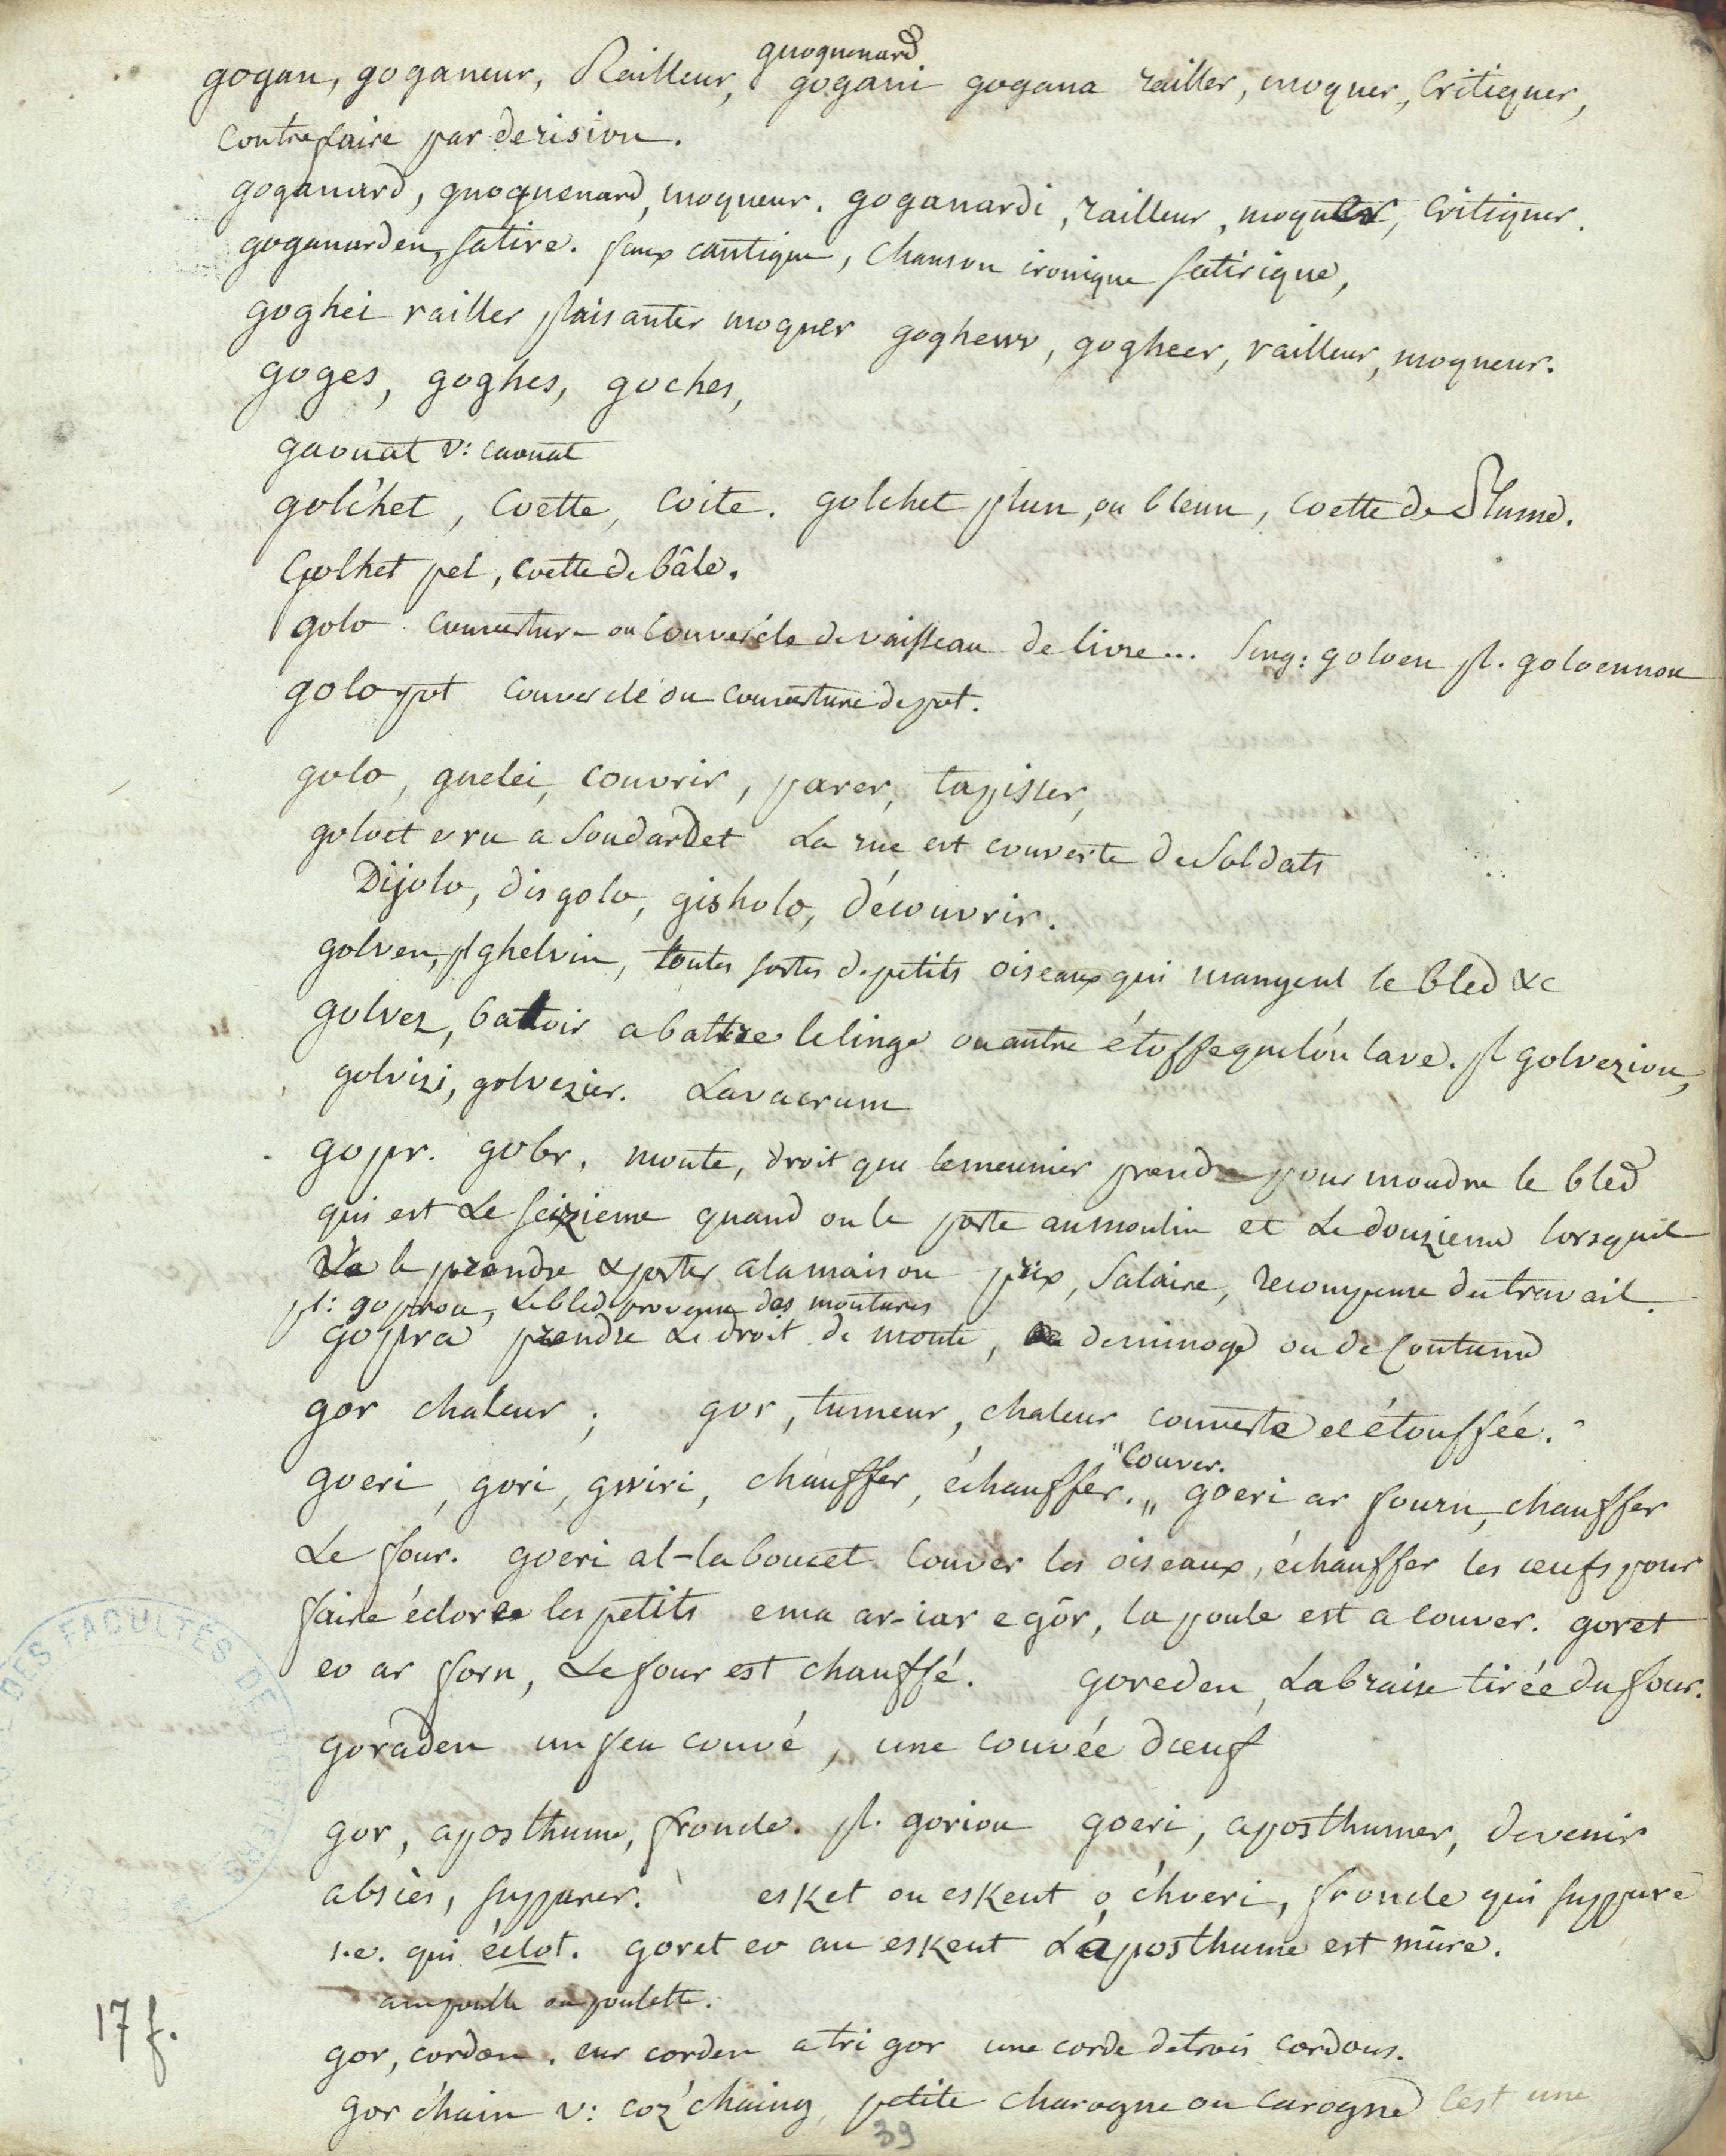 gogan, goganeur, Railleur, guoguenard gogani gogana railler, moquer, Critiquer,
Contrefaire par derision.
goganard, guoguenard, moqueur. goganardi, railleur, moquer, Critiquer.
goganarden, satire. faux cantique, Chanson ironique satirique,
goghei railler plaisanter moquer gogheur, gogheer, railleur, moqueur.
goges, goghes, goches,
gaonat v: caonat
golc'het, Coette, Coite. golchet plun, ou bleun, Coette de Plume.
Golhet pel, Coette de bâle.
golo couverture ou Couvercle de vaisseau de livre... Sing: goloen pl. goloennou
golo pot Couvercle ou Couverture de pot.
golo, guelei, Couvrir, parer, tapisser,
goloet e ru a Soudardet La rue est couverte de Soldats
Dijolo, disgolo, gisholo, découvrir.
golven, pl ghelvin, toutes sortes de petits oiseaux qui mangent le bled &c
golvez, battoir a battre le linge ou autre étoffe que l'on lave. pl golveziou,
golvizi, golvezier. Lavacrum
gopr. gobr, moute, droit que le meunier prend pour moudre le bled
qui est Le seizieme quand on le porte au moulin et Le douzieme lorsquil
Va le prendre & porter a la maison prix, Salaire, recompense du travail.
pl: goprou, Le bled provenu des moutures
gopra prendre Le droit de moute, de deminage ou de Coutume
gor chaleur; gor, tumeur, chaleur couverte et étouffée.
goeri, gori, gwiri, chauffer, échauffer. " Couver. goeri ar fourn, chauffer
Le four. goeri al-laboucet Couver les oiseaux, échauffer les œufs pour
faire éclore les petits ema ar-iar e gôr, la poule est a couver. goret
eo ar forn, Le four est chauffé. goreden, La braise tirée du four.
goraden un feu couvé, une couvée dœuf
gor, aposthume, froncle. pl. goriou goeri, aposthumer, devenir
absces, suppurer. esket ou eskent o c'hoeri, froncle qui suppure
i.e. qui éclot. goret eo an eskent L'aposthume est mûre.
ampoulle ou poulette.
gor, cordon. eur corden a tri gor une corde de trois cordons.
gor c'hain v: coz'chaing, petite charogne ou carogne Cest une
17 f.
39
DES FACULTÉS DE POITIERS